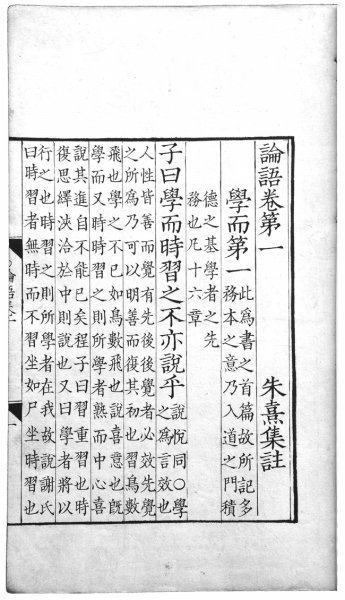 論語卷第一
朱熹集註
學而第一
此爲書之首篇故所記多
務本之意乃入道之門積
德之基學者之先
務也凡十六章
子曰學而時習之不亦說乎
說悅同○學
之爲言效也
人性皆善而覺有先後後覺者必效先覺
之所爲乃可以明善而復其初也習鳥數
飛也學之不已如鳥數飛也說喜意也旣
學而又時時習之則所學者熟而中心喜
說其進自不能已矣程子曰習重習也時
復思繹浹洽於中則說也又曰學者將以
行之也時習之則所學者在我故說謝氏
曰時習者無時而不習坐如尸坐時習也